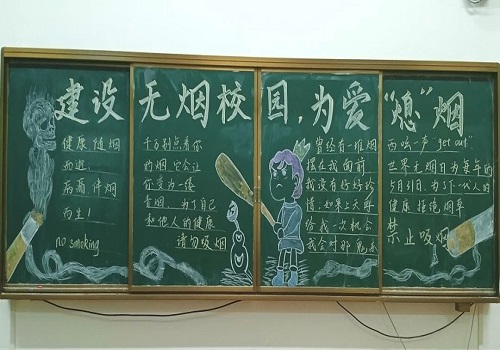 建设无烟校园,为爱“熄”烟
健康随烟
而逝,
病痛伴烟
而生!
no smoking
千万别点着你
的烟,它会让
你变为一缕
青烟。为了自己
和他人的健康
请勿吸烟
曾经有一堆烟
摆在我面前
我没有好好珍
惜,如果上天再
给我一次机会
我会对那
吼一声"get out"
世界无烟日为每年的
5月31日,为了下一代人的
健康拒绝烟草
禁止吸烟